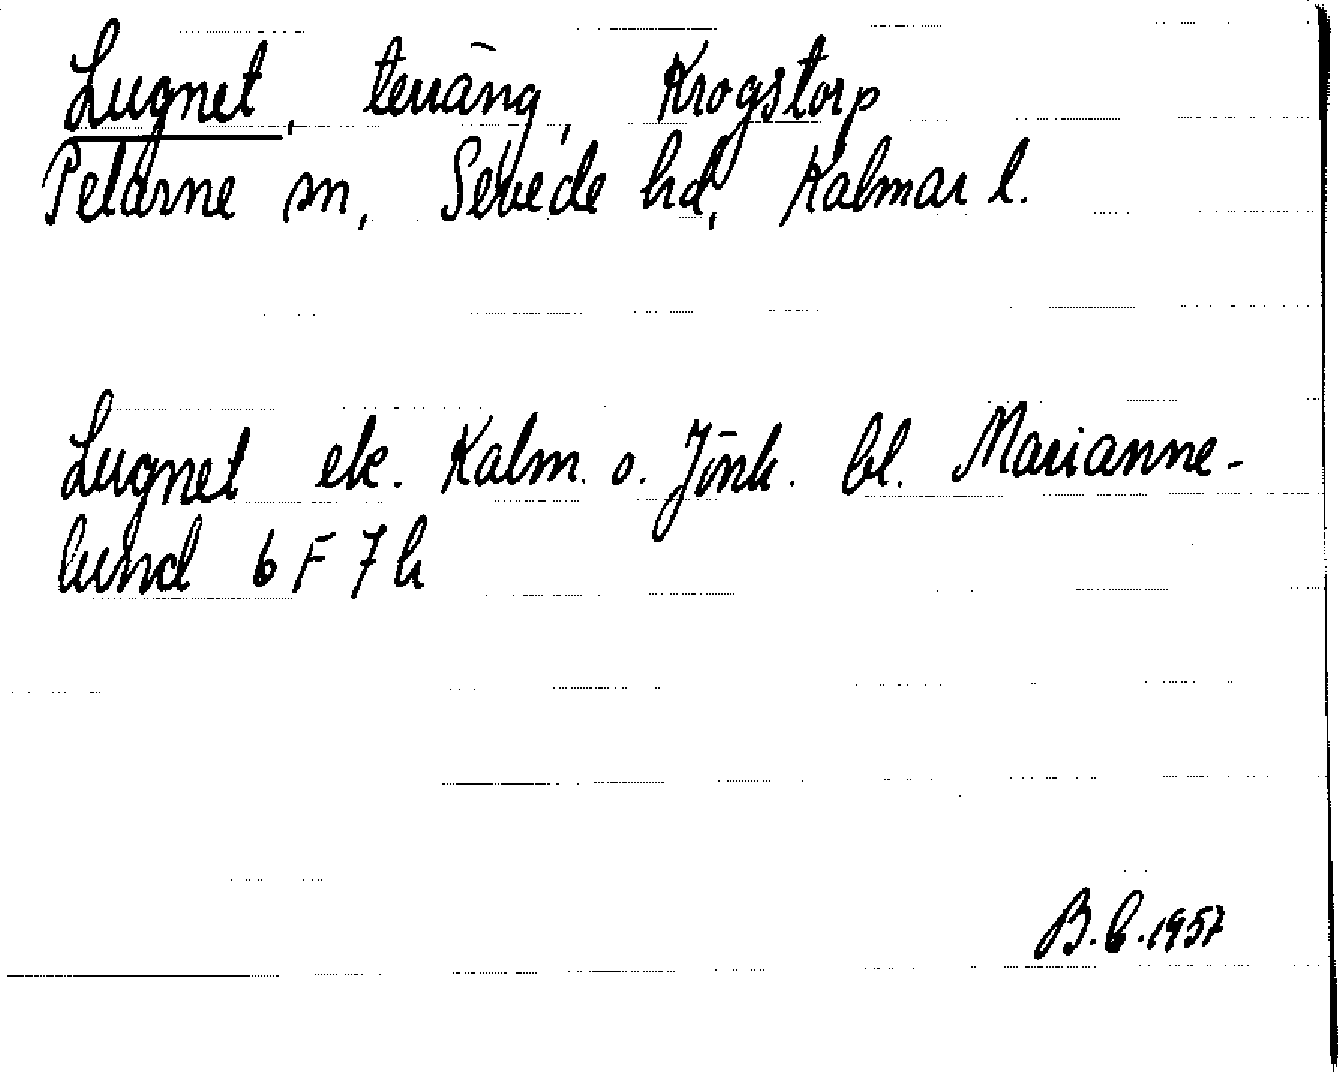 Lugnet, terräng, Krogstorp
Pelarne sn, Sevede hd, Kalmar l.
Lugnet ek. Kalm. o. Jönk. bl. Marianne-
lund 6 F 7 h
B.C. 1957